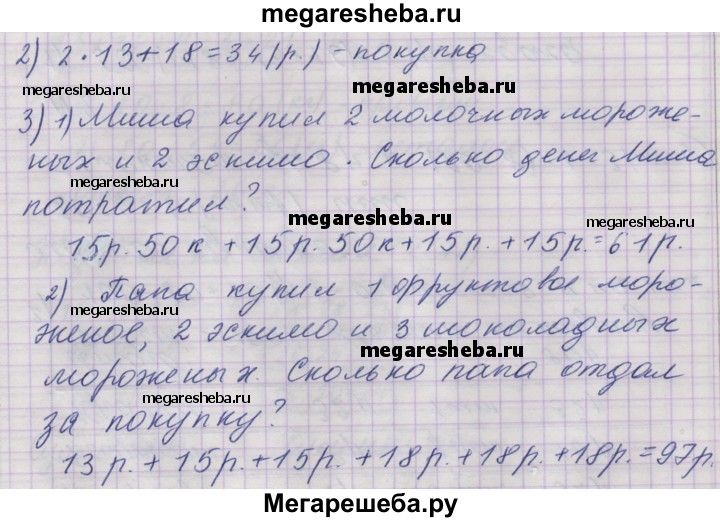 megaresheba.ru
2) 2 · 13 + 18 = 34 (р.) - покупка
megaresheba.ru megaresheba.ru
3) 1) Миша купил 2 молочных мороже-
ных и 2 эскимо. Сколько денег Миша
megaresheba.ru
потратил?
megaresheba.ru megaresheba.ru
15р. 50к + 15р. 50к + 15р. + 15р. = 61р.
2) Папа купил 1 фруктовое моро-
megaresheba.ru
женое, 2 эскимо и 3 шоколадных
megaresheba.ru
мороженых. Сколько папа отдал
megaresheba.ru
за покупку?
13р. + 15р. + 15р. + 18р. + 18р. + 18р. = 97р.
Мегарешеба.ру